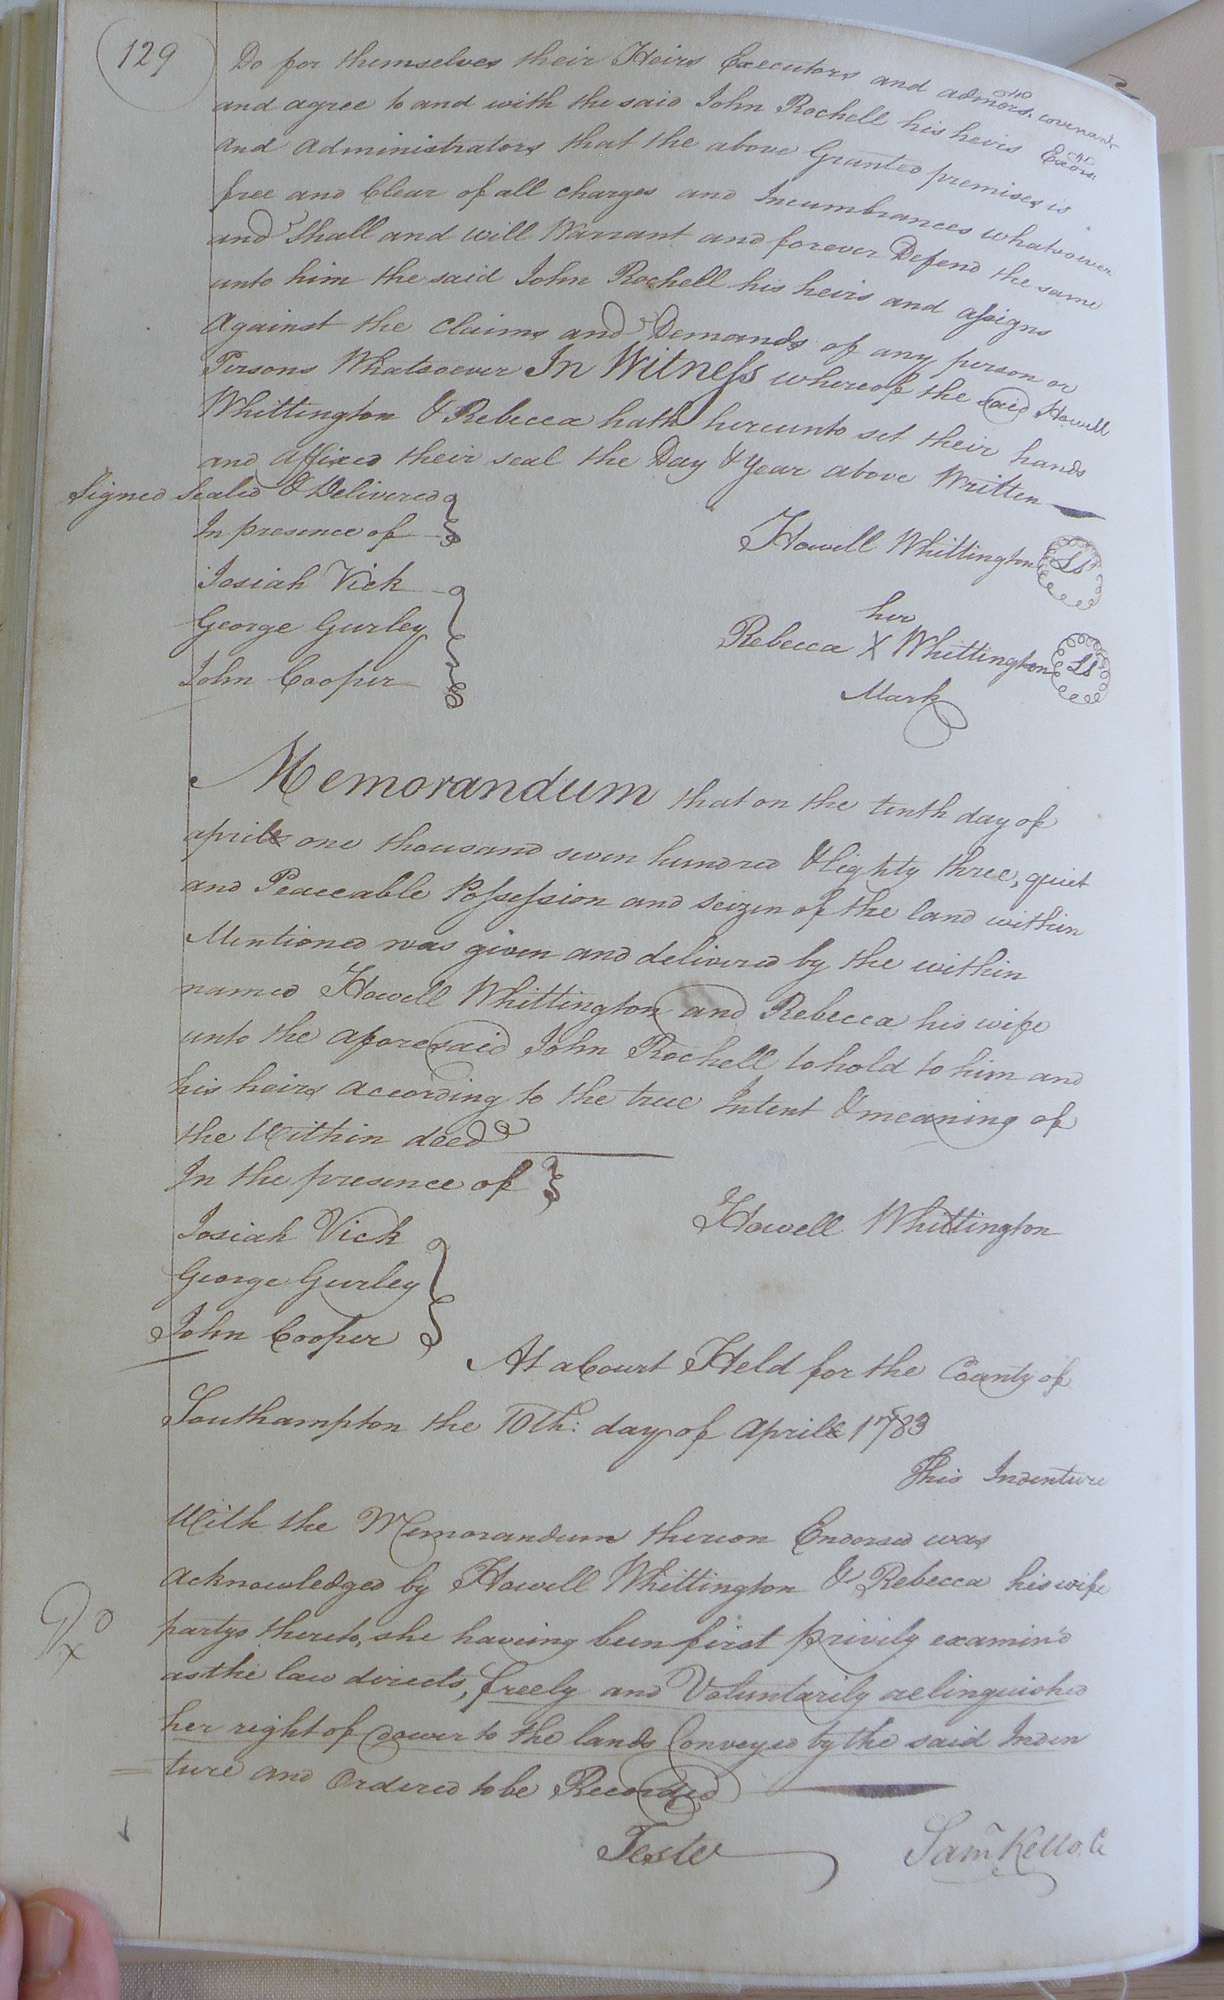 129
Do for themselves their Heirs Executors and admors. covenant
and agree to and with the said John Rochell his heirs Exors.
and administrators that the above Granted premises is
free and Clear of all charges and Incumbrances whatsoever
and Shall and will Warrant and forever Defend the same
unto him the said John Rochell his heirs and assigns
Against the Claims and Demands of any person or
Persons Whatsoever In Witness whereof the said Howell
Whittington & Rebecca hath hereunto set their hands
and Affixed their seal the Day & Year above Written
Signed Sealed & Delivered
In presence of
Howell Whittington LS
Josiah Vick
her
George Gurley
Rebecca X Whittington LS
John Cooper
Mark
Memorandum that on the tenth day of
april one thousand seven hundred & Eighty three, quiet
and Peaceable Possession and Seizen of the land within
Mentioned was given and delivered by the within
named Howell Whittington and Rebecca his wife
unto the aforesaid John Rochell to hold to him and
his heirs According to the true Intent & meaning of
the Within deed
In the presence of
Howell Whittington
Josiah Vick
George Gurley
John Cooper
At a Court Held for the County of
Southampton the 10th: day of April 1783
This Indenture
With the Memorandum thereon Endorsed was
Acknowledged by Howell Whittington & Rebecca his wife
partys thereto, she haveing been first privily examin'd
as the law directs, freely and Voluntarily relinquished
her right of dower to the lands Conveyed by the said Inden
ture and Ordered to be Recorded
Teste
Saml Kello. C